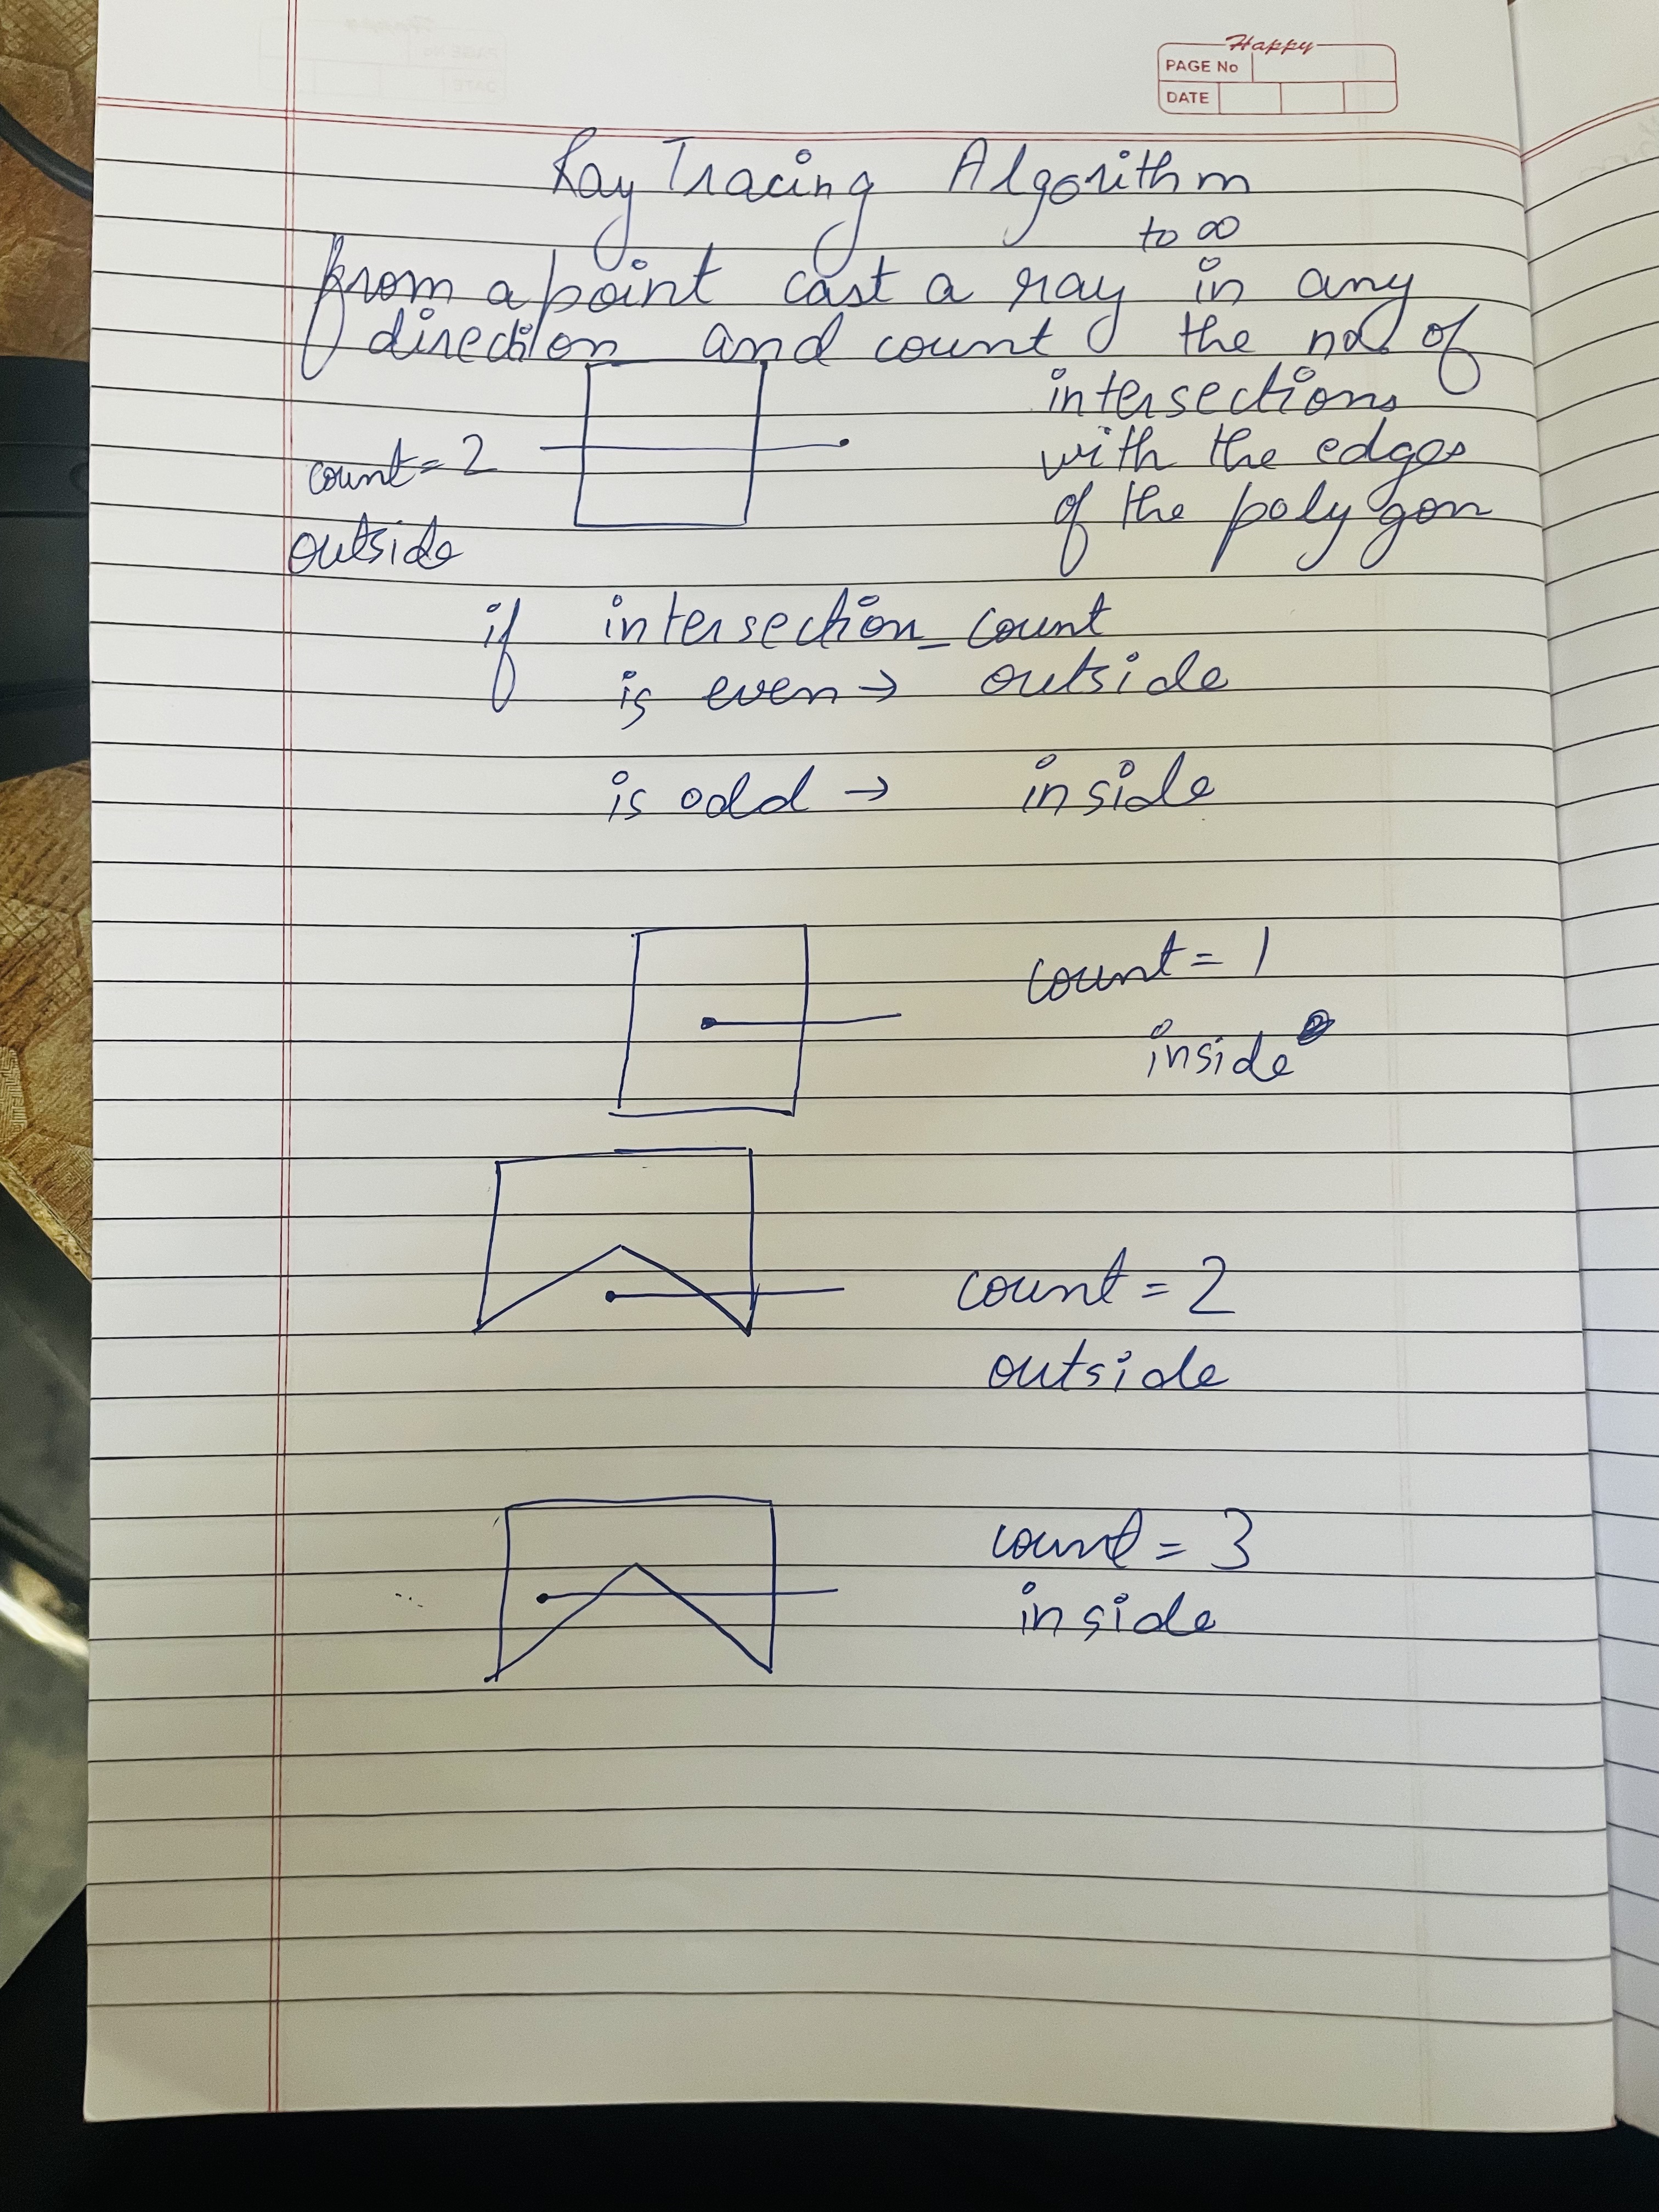 Happy
PAGE No
DATE
Ray Tracing Algorithm
to ∞
from a point cast a ray in any
direction and count the no. of
intersections
with the edges
of the polygon
count = 2
outside
if intersection_count
is even → outside
is odd → inside
count = 1
inside
count = 2
outside
count = 3
inside